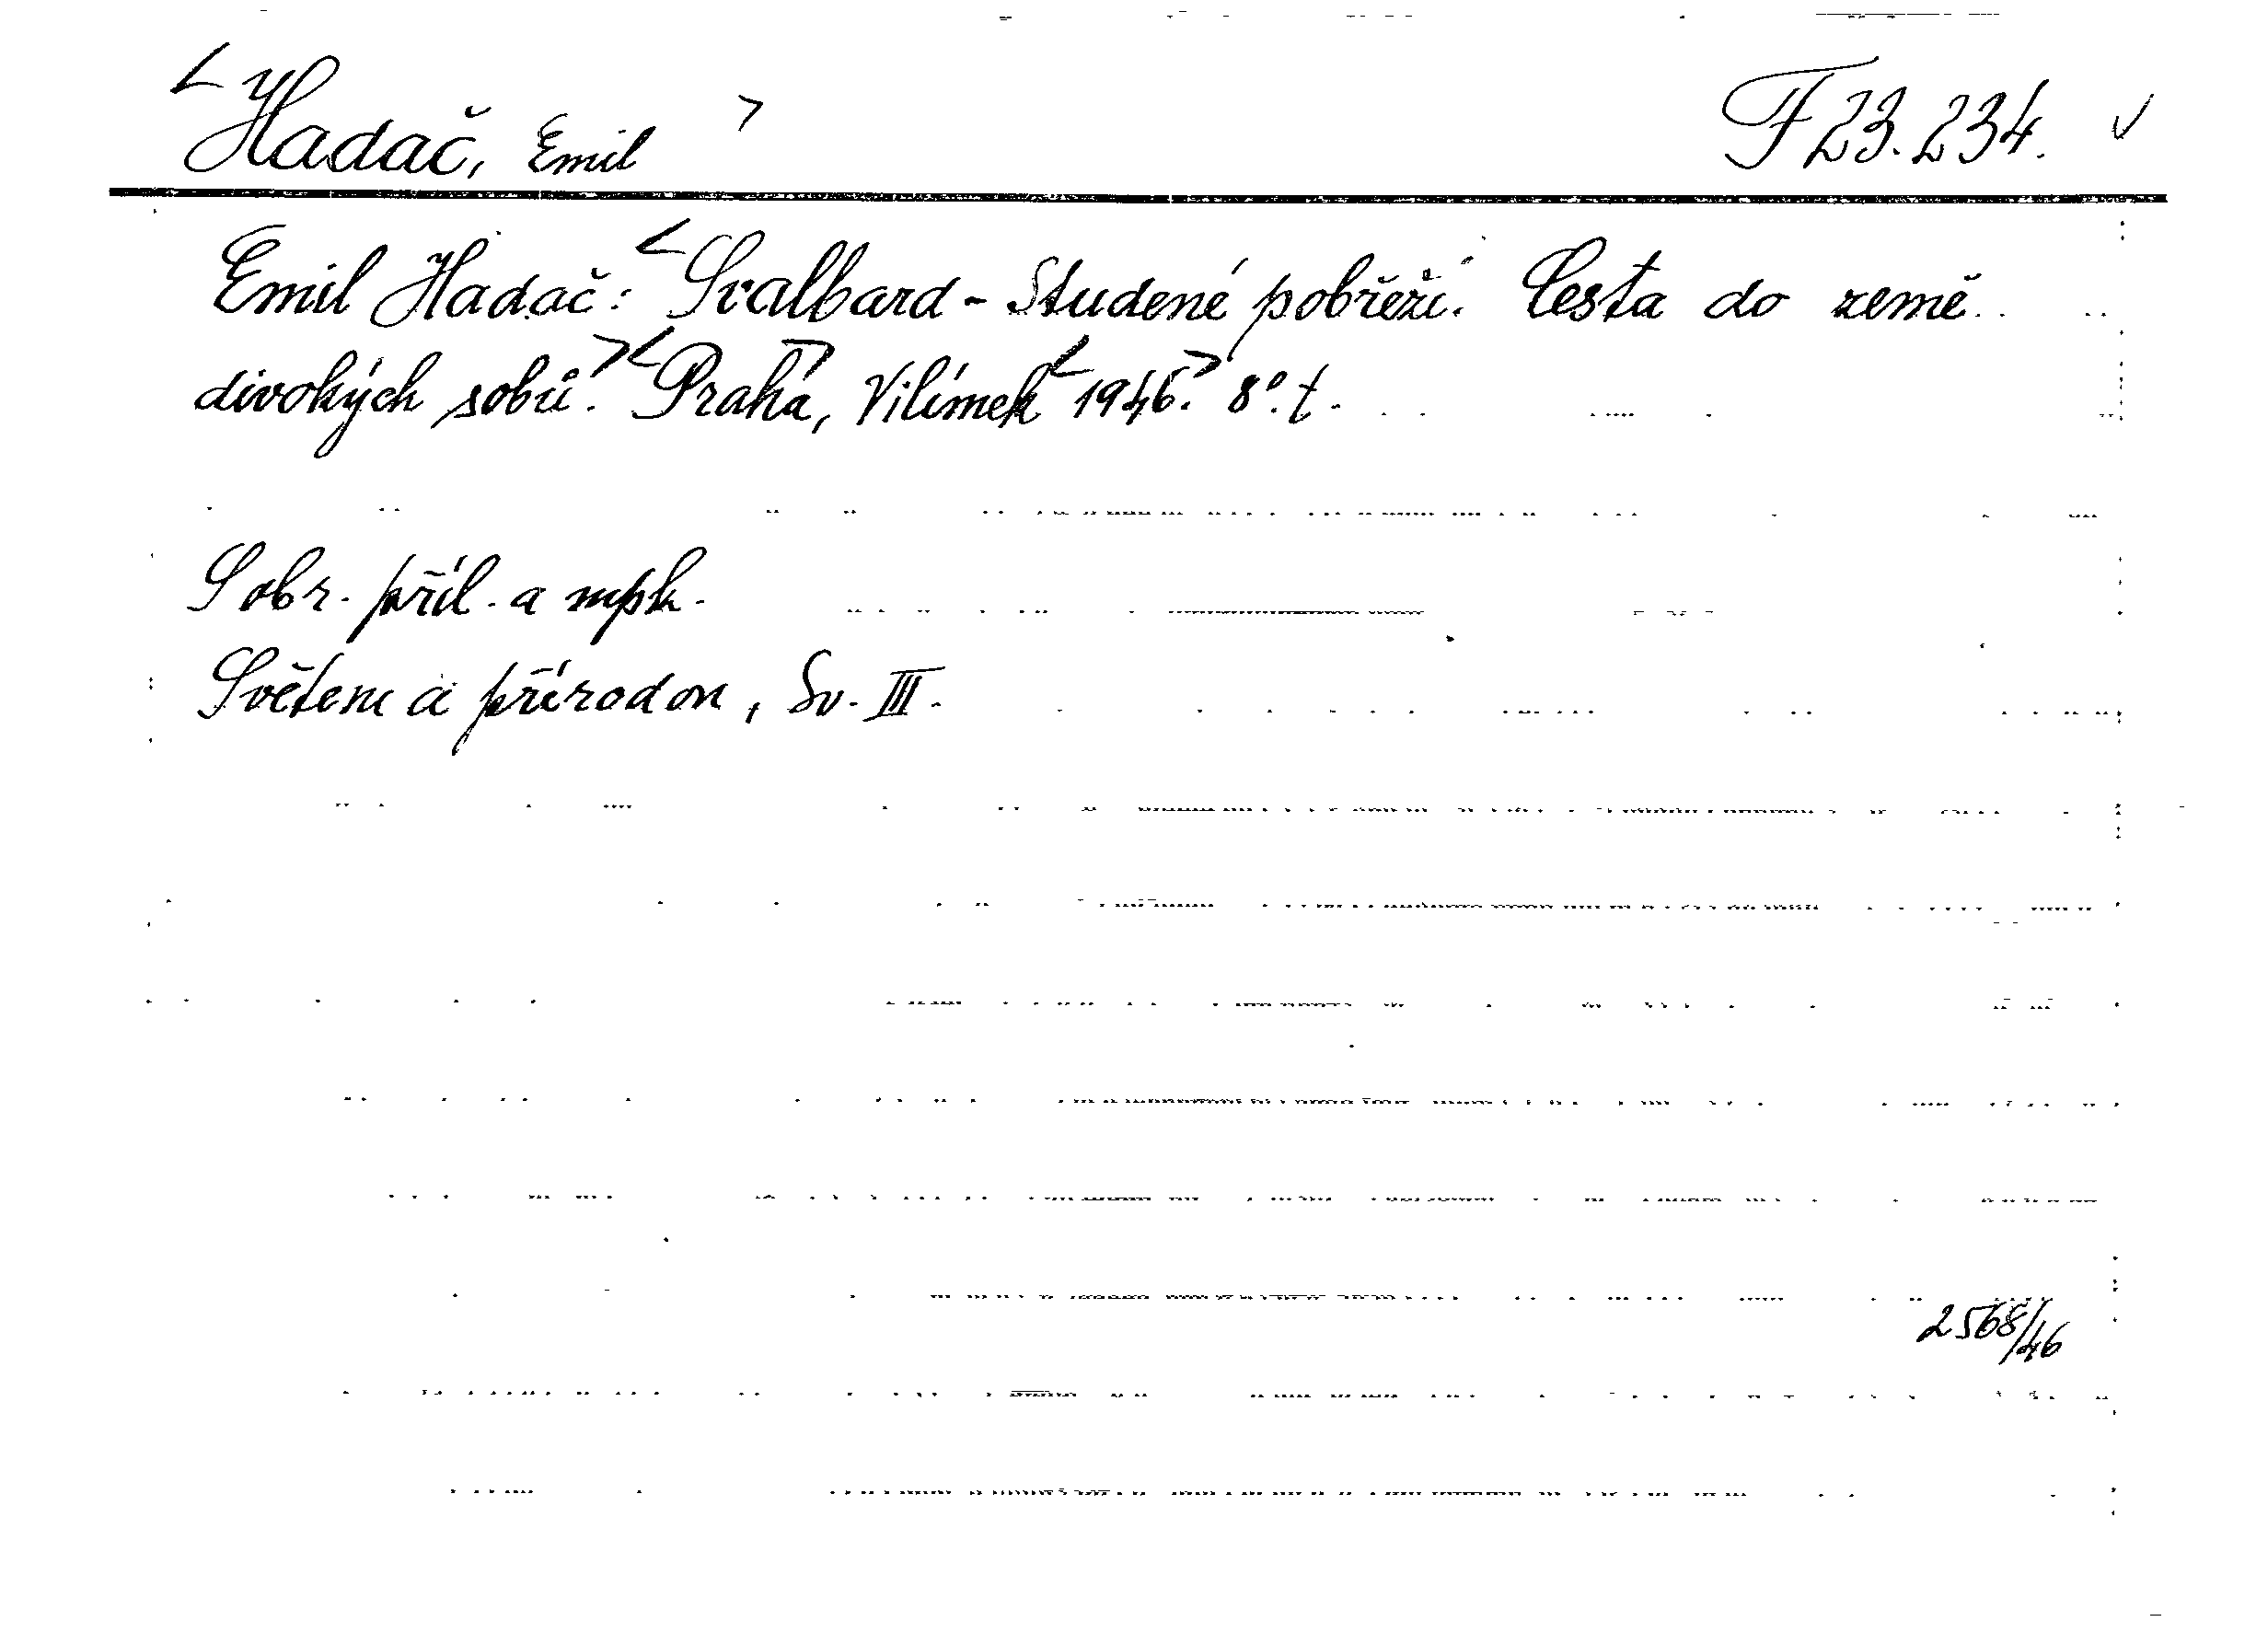 <Hadač, Emil> F 23.234. ✓
Emil Hadač: <Svalbard - Studené pobřeží. Cesta do země
divokých sobů.> <Praha>, Vilímek <1946.> 8°. t.
S obr. příl. a mpk.
Světem a přírodou, Sv. III.
2568/46